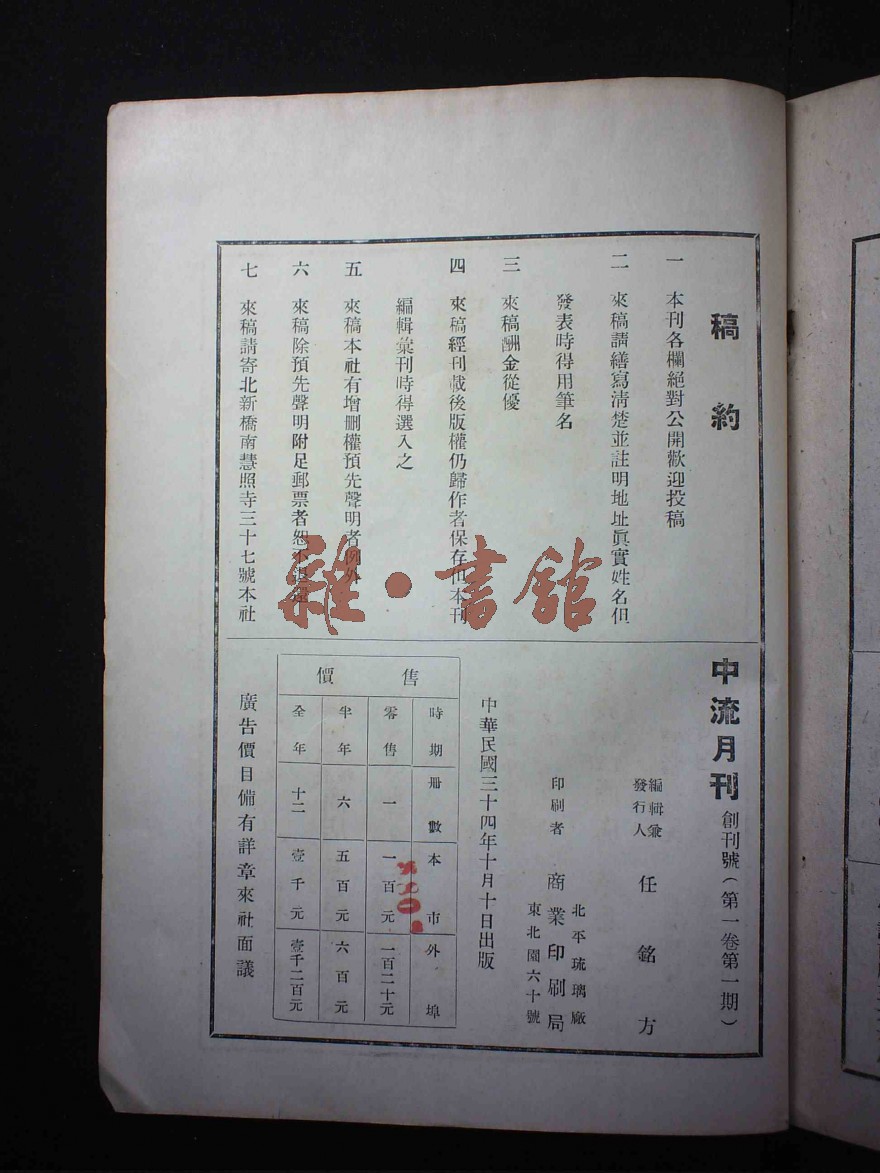 稿約
一 本刊各欄絕對公開歡迎投稿
二 來稿請繕寫清楚並註明地址眞實姓名但
發表時得用筆名
三 來稿酬金從優
四 來稿經刊載後版權仍歸作者保存但本刊
編輯彙刊時得選入之
五 來稿本社有增删權預先聲明者例外
六 來稿除預先聲明附足郵票者恕不退還
七 來稿請寄北新橋南慧照寺三十七號本社
中流月刊 創刊號（第一卷第一期）
編輯兼
發行人 任銘方
北平琉璃廠
印刷者 商業印刷局
東北園六十號
中華民國三十四年十月十日出版
售價
時期 冊數 本市 外埠
零售 一 一百元 一百二十元
半年 六 五百元 六百元
全年 十二 壹千元 壹千二百元
廣告價目備有詳章來社面議
雜·書館